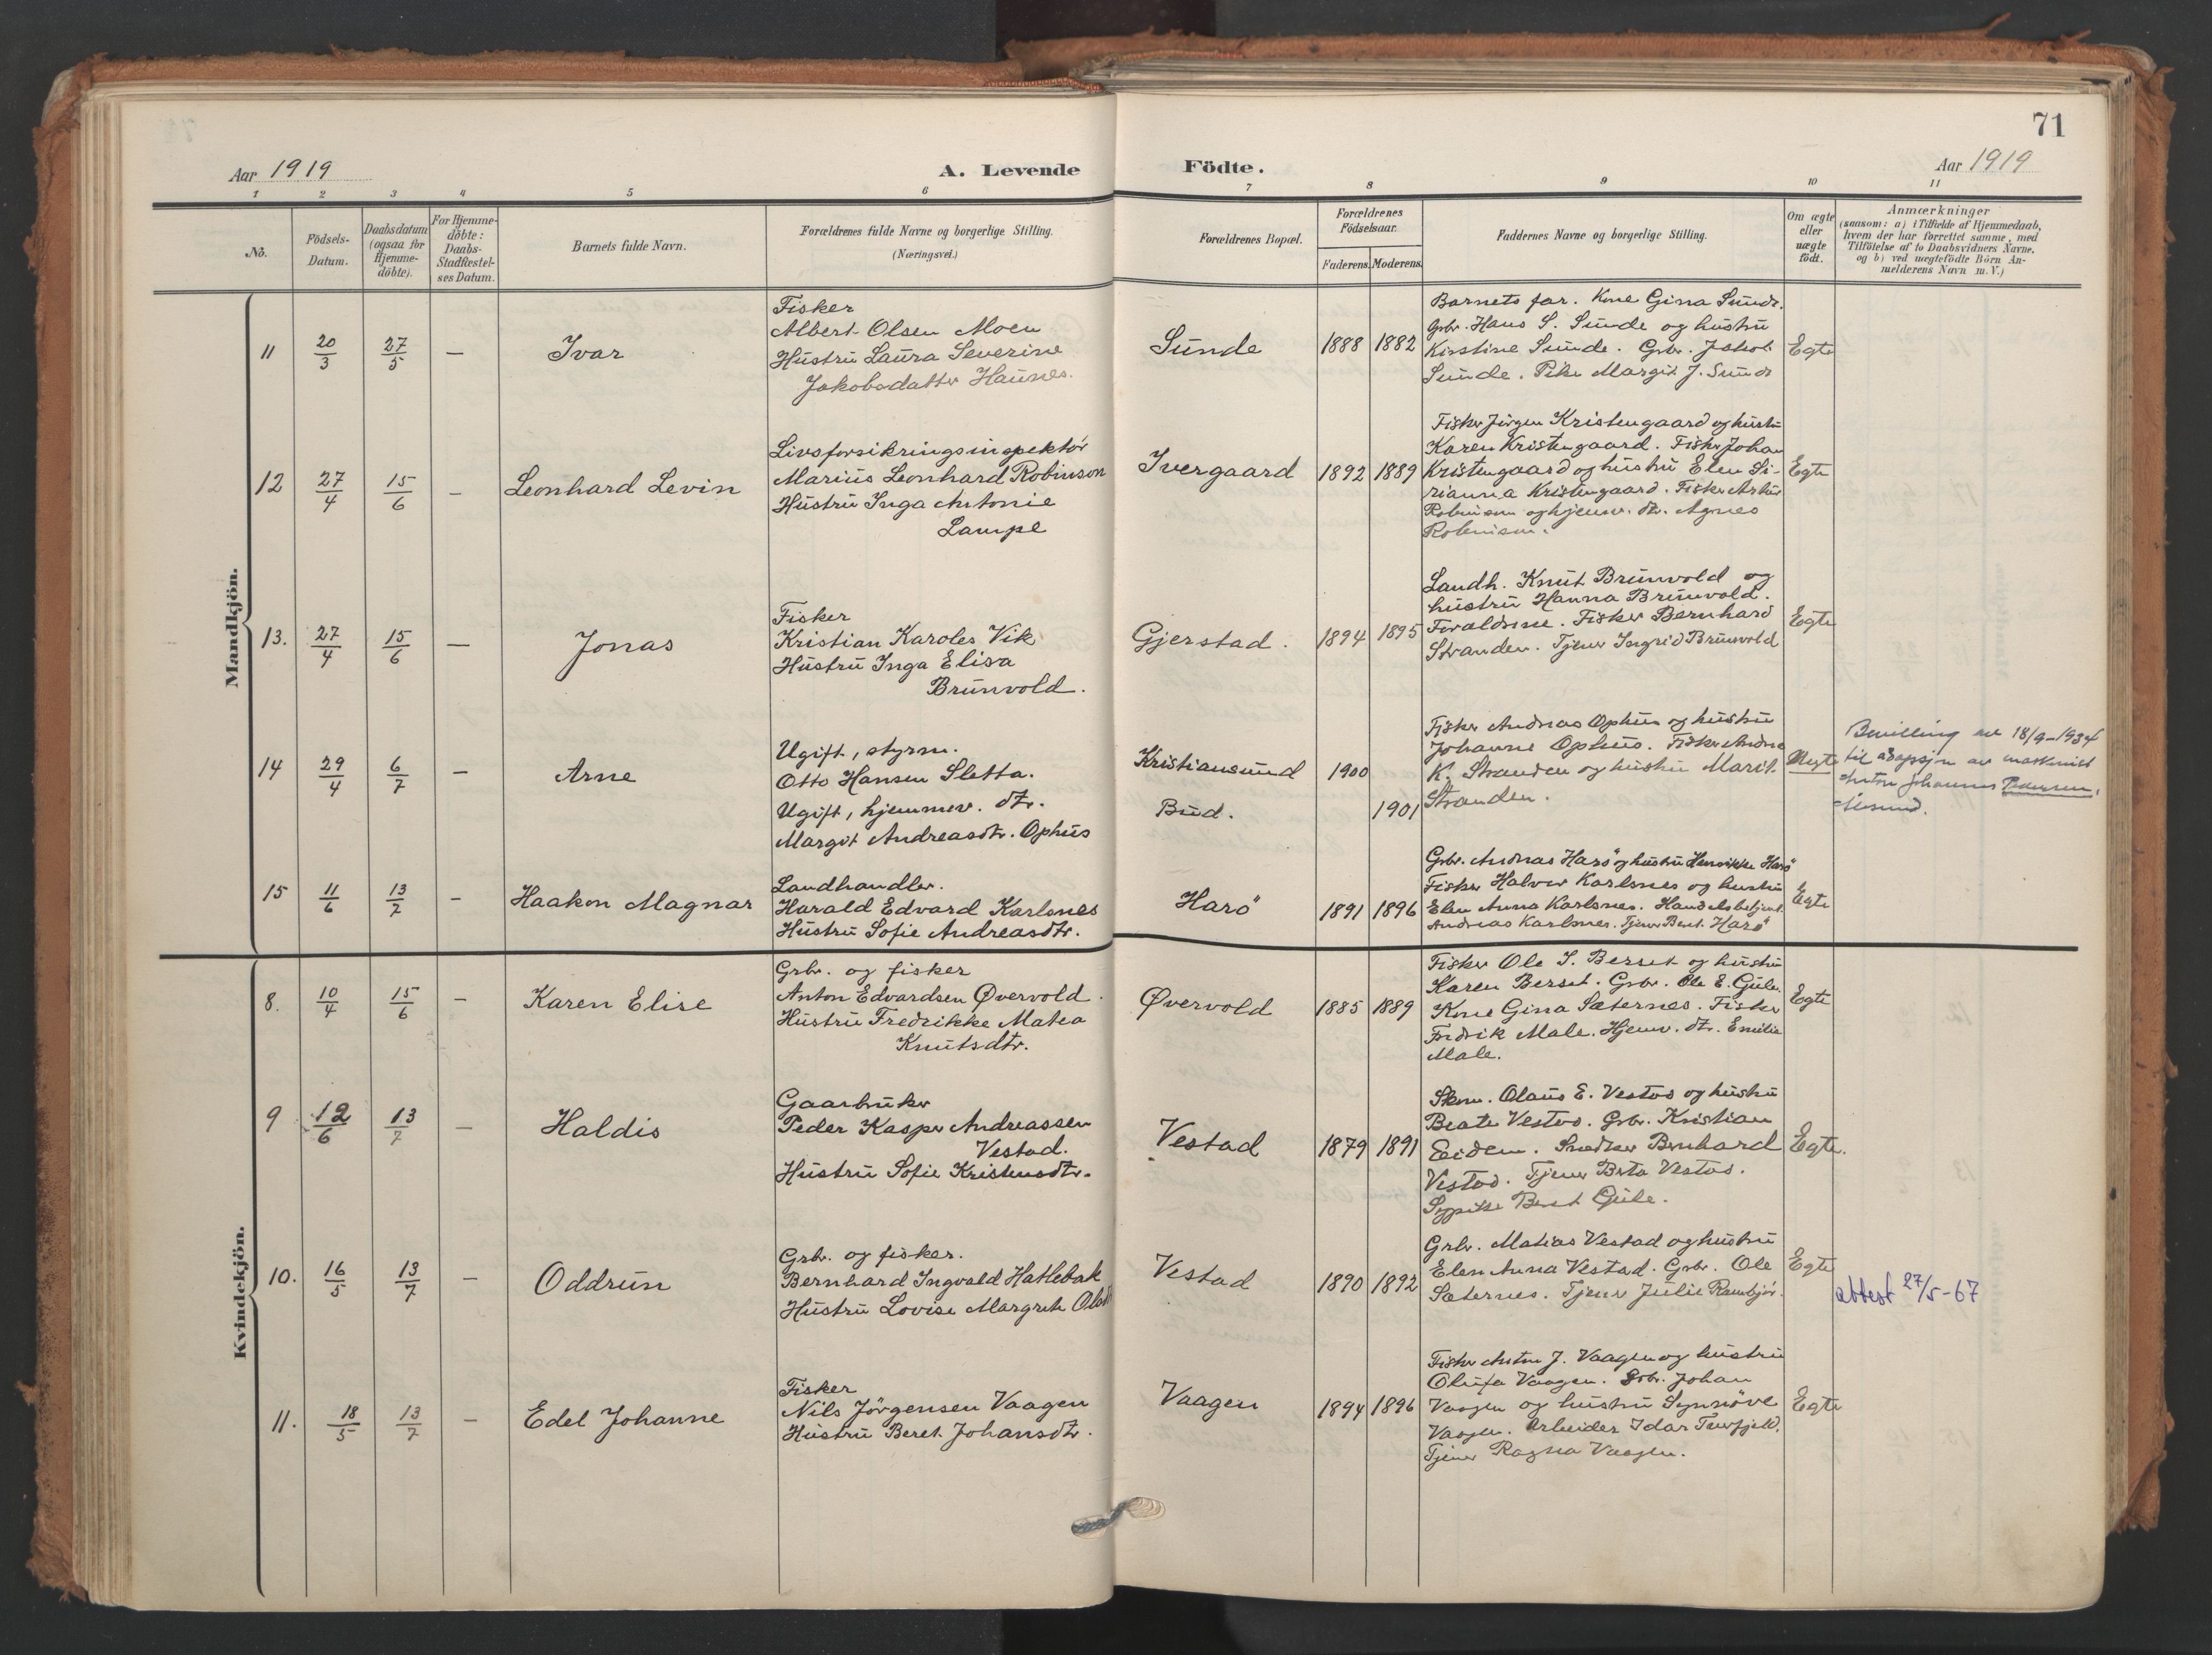 71
Aar 1919
A. Levende
Födte.
Aar 1919
1 2 3 4 5 6 7 8 9 10 11
No.
Födsels-
Datum.
Daabsdatum
(ogsaa for
Hjemme-
döbte).
For Hjemme-
döbte:
Daabs-
Stadfæstel-
ses Datum.
Barnets fulde Navn.
Forældrenes fulde Navne og borgerlige Stilling.
(Næringsvei.)
Forældrenes Bopæl.
Forældrenes
Födselsaar.
Faderens. Moderens.
Faddernes Navne og borgerlige Stilling.
Om ægte
eller
uægte
födt.
Anmærkninger
(saasom: a) i Tilfælde af Hjemmedaab,
hvem der har forrettet samme, med
Tilföielse af to Daabsvidners Navne,
og b) ved uægtefödte Börn An-
melderens Navn m. V.)
Mandkjön.
11
20/3
27/5
—
Ivar
Fisker
Albert Olsen Moen
Hustru Laura Severine
Jakobsdatter Haunes.
Sunde
1888 1882
Barnets far. Kone Gina Sunde.
Grbr. Hans S. Sunde og hustru
Kirstine Sunde. Grbr. Jakob
Sunde. Pike Margit J. Sunde
Egte
12
27/4
15/6
—
Leonhard Levin
Livsforsikringsinspektör
Marius Leonhard Robinson
Hustru Inga Antonie
Lampe
Ivergaard
1892 1889
Fisker Jörgen Kristengaard og hustru
Karen Kristengaard. Fisker Johan
Kristengaard og hustru Elen Si-
rianna Kristengaard. Fisker Arthur
Robinson og hjemv. dtr. Agnes
Robinson.
Egte
13.
27/4
15/6
—
Jonas
Fisker
Kristian Karoles Vik
Hustru Inga Elisa
Brunvold.
Gjerstad.
1894 1895
Landh. Knut Brunvold og
hustru Hanna Brunvold.
Foraldrene. Fisker Bernhard
Stranden. Tjener Ingrid Brunvold
Egte
14
29/4
6/7
—
Arne
Ugift, styrm.
Otto Hansen Sletta.
Ugift, hjemmev. dtr.
Margit Andreasdtr. Ophus
Kristiansund
Bud.
1900
1901
Fisker Andreas Ophus og hustru
Johanne Ophus. Fisker Andreas
K. Stranden og hustru Marit
Stranden.
Uegte
Bevilling av 18/9-1934
til adopsjon av maskinist
Anton Johannes
15
11/6
13/7
-
Haakon Magnar
Landhandler.
Harald Edvard Karlsnes
Hustru Sofie Andreasdtr.
Harö
1891 1896
Grbr. Andreas Harö og hustru Henrikke Harö
Fisker Halvor Karlsnes og hustru
Elen Anna Karlsnes. Handelsbetjent
Andreas Karlsnes. Tjener Beret Harö
Egte
Kvindekjön.
8.
10/4
15/6
—
Karen Elise
Grbr. og fisker
Anton Edvardsen Øvervold.
Hustru Fredrikke Matea
Knutsdtr.
Øvervold
1885 1889
Fisker Ole S. Berset og hustru
Karen Berset. Grbr. Ole E. Gule.
Kone Gina Sæternes. Fisker
Fredrik Male. Hjemv. dtr. Emilie
Male.
Egte
9
12/6
13/7
—
Haldis
Gaarbruker
Peder Kasper Andreassen
Vestad.
Hustru Sofie Kristensdtr.
Vestad
1879 1891
Skom. Olaus E. Vestad og hustru
Beate Vestad. Grbr. Kristian
Eidem. Snedker Bernhard
Vestad. Tjener Berta Vestad.
Sypike Beret Gule.
Egte.
10.
16/5
13/7
—
Oddrun
Grbr. og fisker.
Bernhard Ingvald Hatlebak
Hustru Lovise Margrete Olsdtr
Vestad
1890 1892
Grbr. Matias Vestad og hustru
Elen Anna Vestad. Grbr. Ole
Sæternes. Tjener Julie
Egte
attest 27/5-67
11.
18/5
13/7
—
Edel Johanne
Fisker
Nils Jörgensen Vaagen
Hustru Beret Johansdtr.
Vaagen
1894 1896
Fisker Anton J. Vaagen og hustru
Olufa Vaagen. Grbr. Johan
Vaagen og hustru Synnöve
Vaagen. Arbeider Idar
Tjener Ragna Vaagen.
Egte